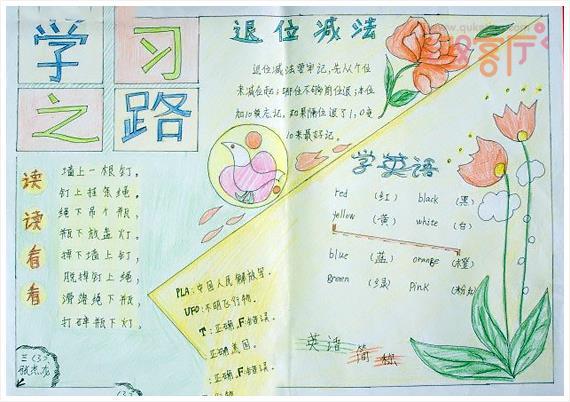 学习
之路
退位减法
退位减法要牢记,先从个位
来减位起;哪位不够前位退,本位
加10莫忘记,如果隔位退了1,0变
10来最好记。
读读看看
墙上一根钉,
钉上挂条绳,
绳下吊个瓶,
瓶下放盏灯。
掉下墙上钉,
脱掉钉上绳,
滑落绳下瓶,
打碎瓶下灯,
学英语
red (红) black (黑
yellow (黄) white (白
blue (蓝) orange (橙
Green (绿) Pink (粉
PLA:中国人民解放军。
UFO:不明飞行物。
T:正确,F:错误。
英语
简称
三(3)